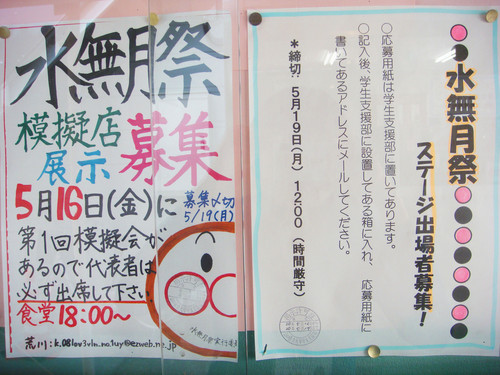 水無月祭
模擬店
展示
募集
5月16日(金)に
募集〆切
5/19(月)
第1回模擬会が
あるので代表者は
必ず出席して下さい
食堂18:00～
水無月祭実行委員
水無月祭
ステージ出場者募集!
○応募用紙は学生支援部に置いてあります。
○記入後、学生支援部に設置してある箱に入れ、応募用紙に
書いてあるアドレスにメールしてください。
*締切:5月19日(月) 1200 (時間厳守)